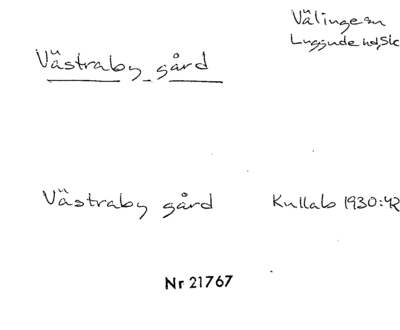 Välinge sn
Luggude hd, Sk
Västraby gård
Västraby gård Kullab 1930:42
Nr 21767